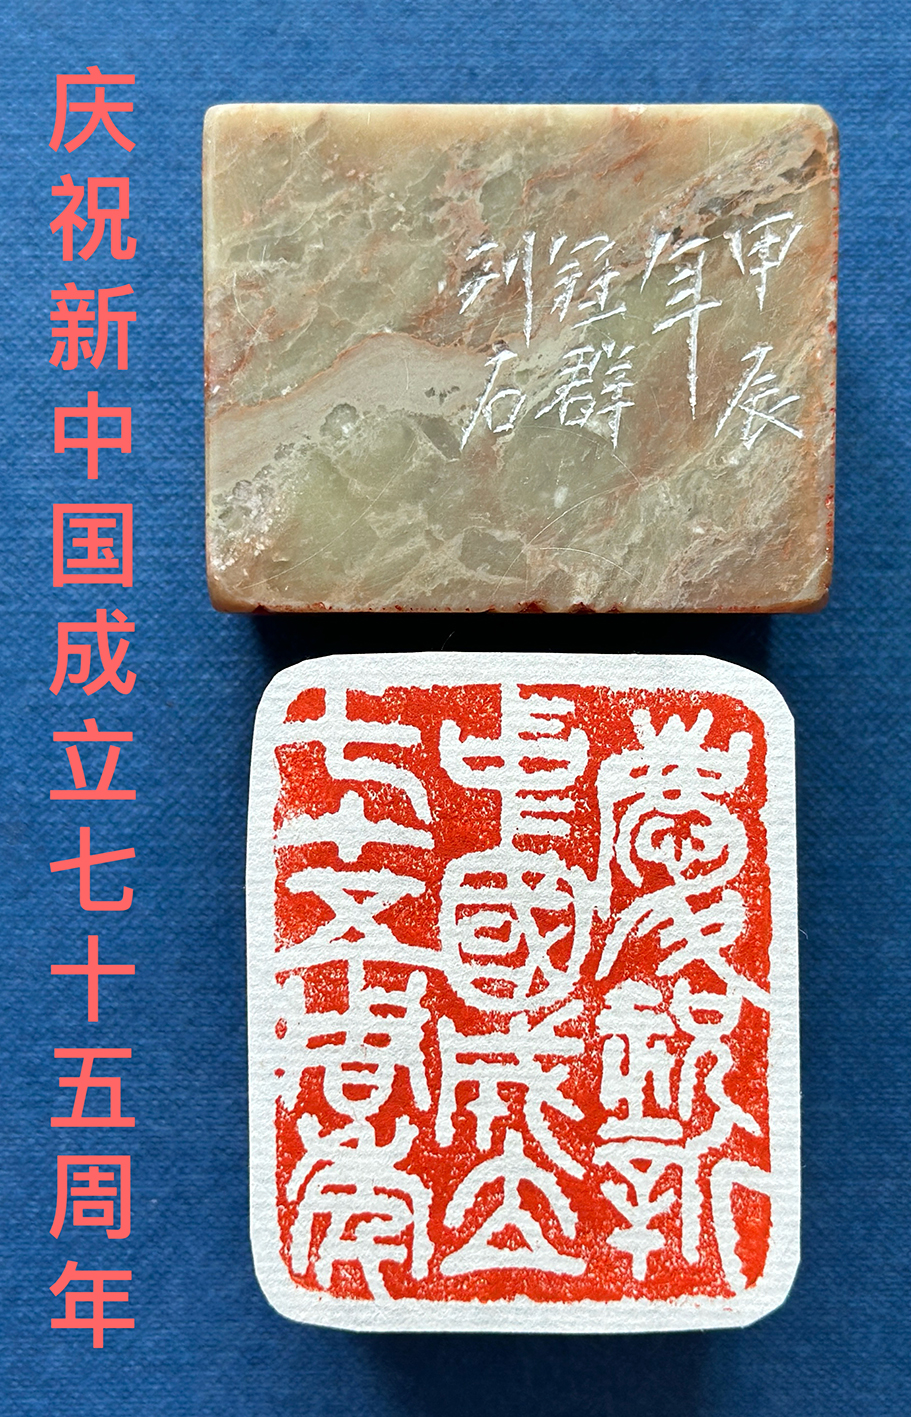 庆祝新中国成立七十五周年
甲辰
年
冠群
刊石
慶祝新
中國成立
七十五周年